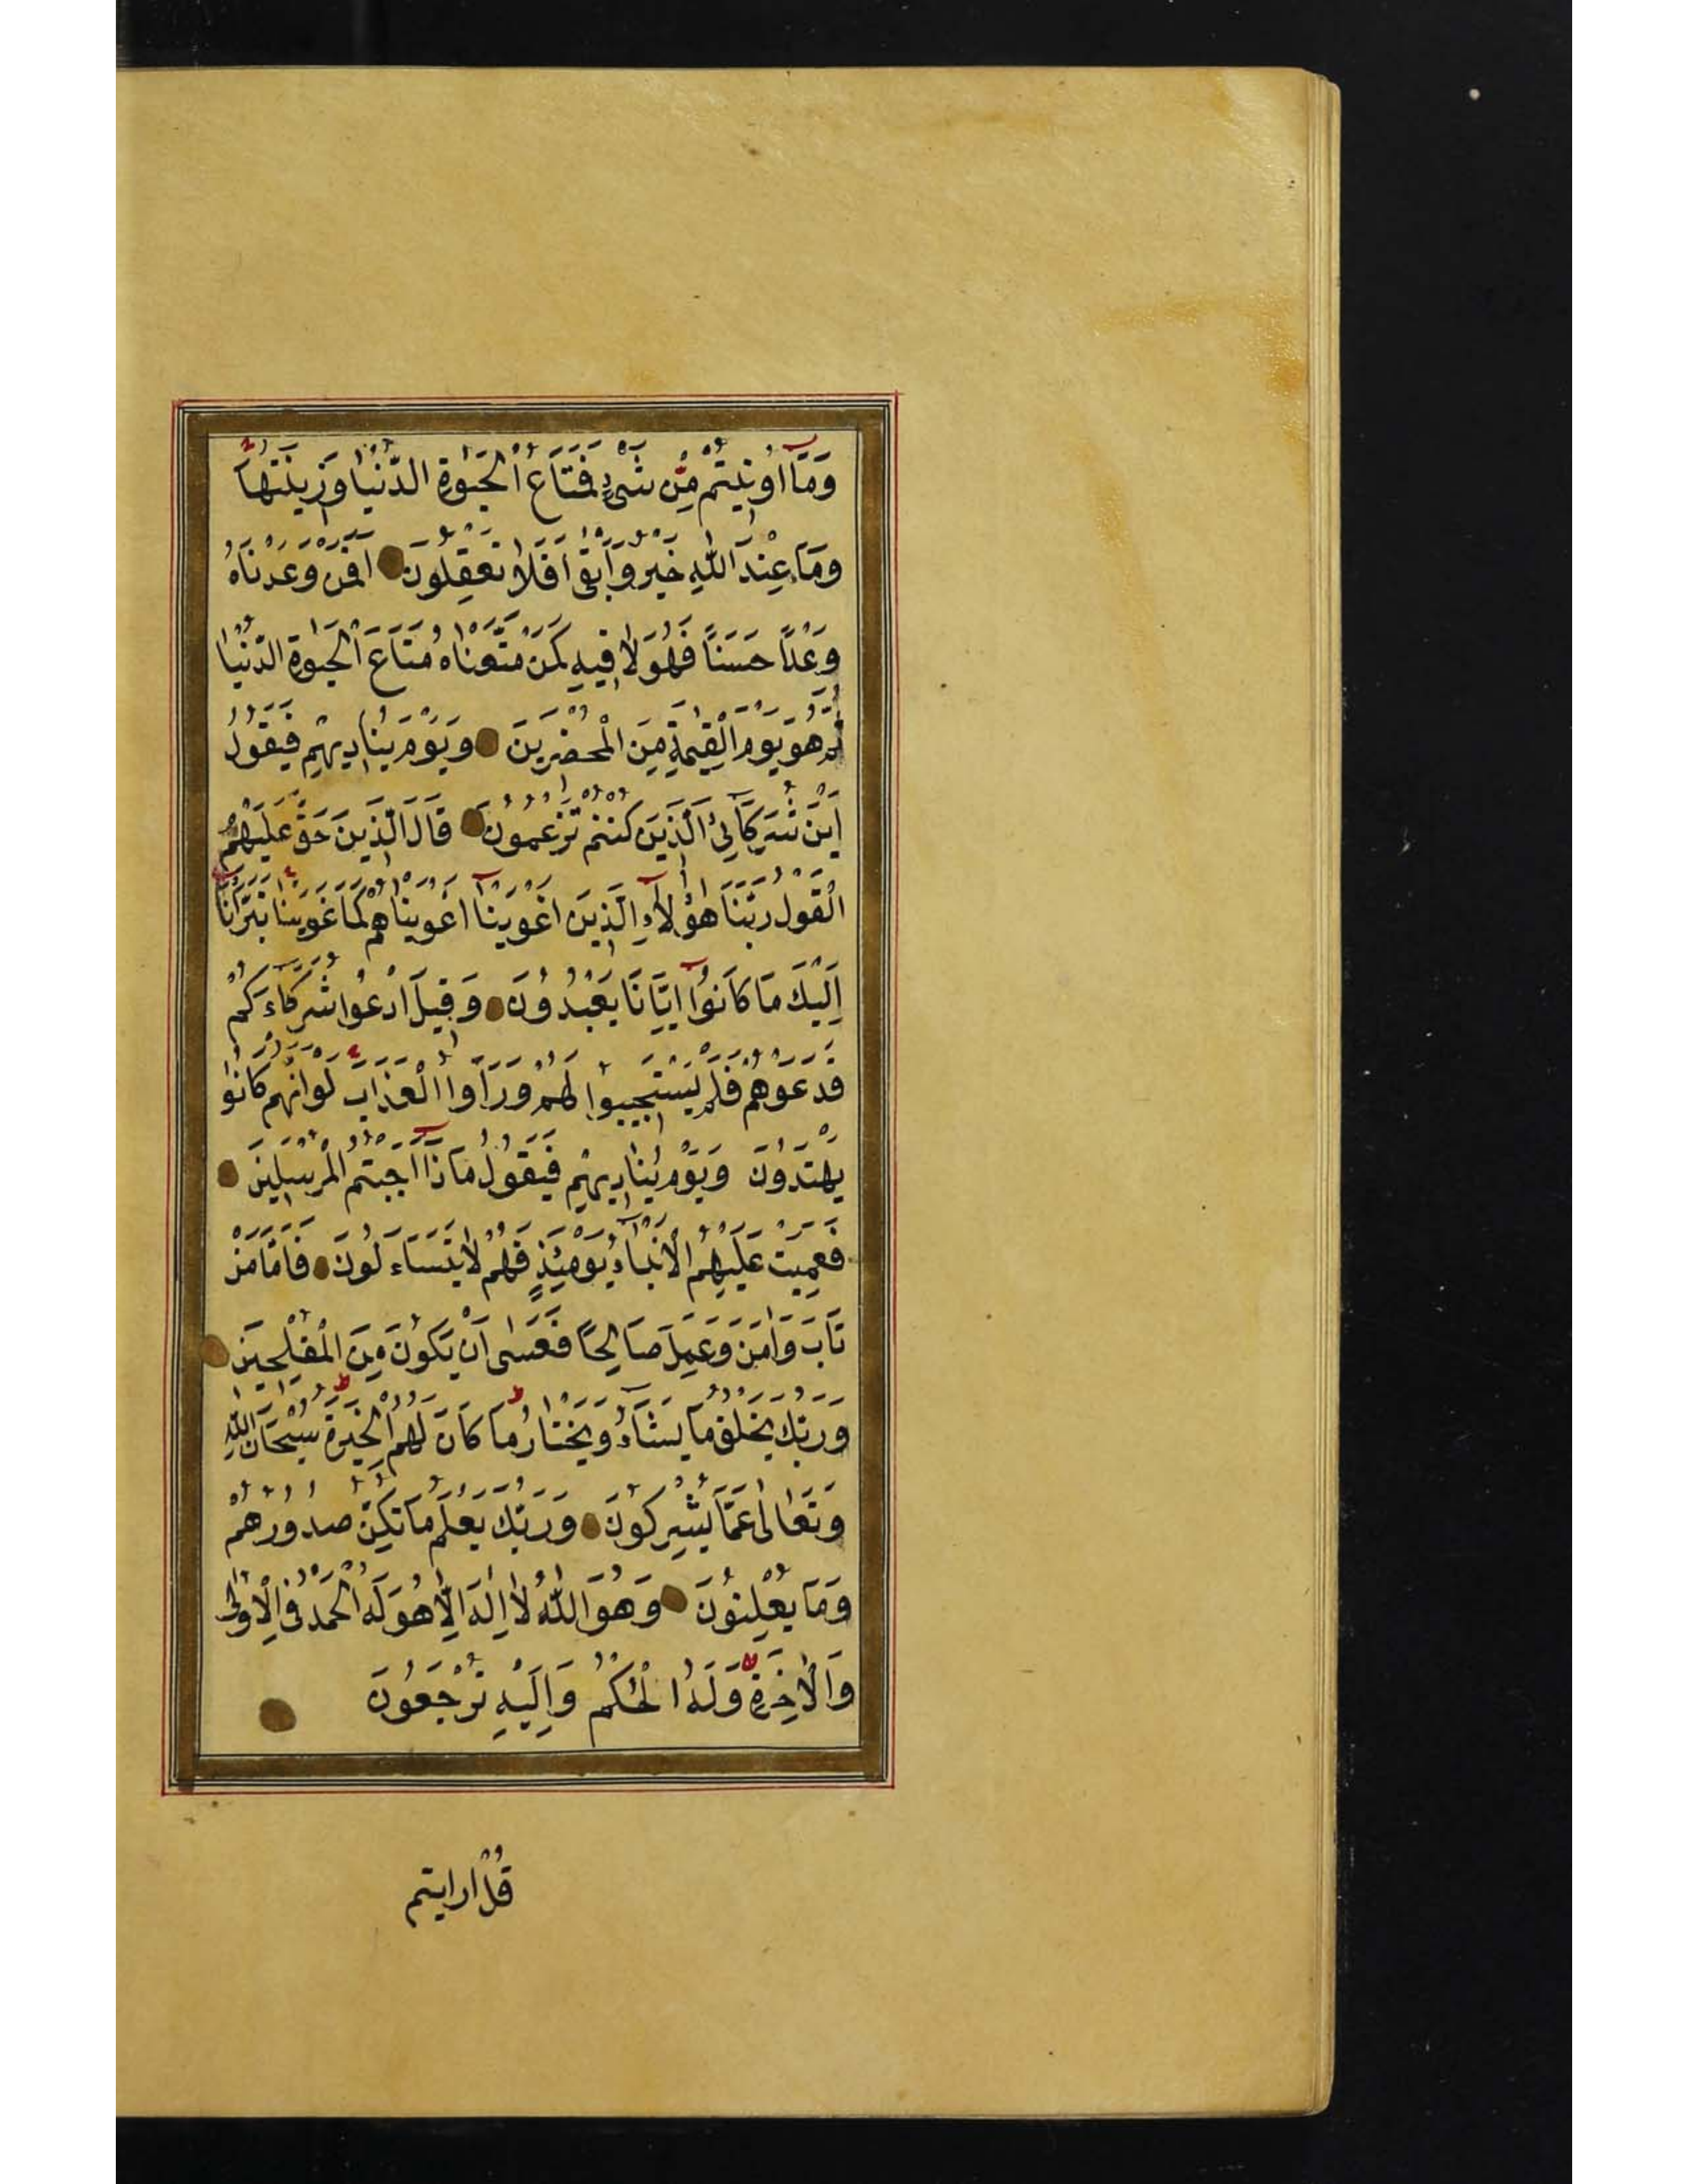 وَمَآ اُوتِيتُمْ مِنْ شَىْءٍ فَمَتَاعُ الْحَيٰوةِ الدُّنْيَا وَزِينَتُهَا
وَمَا عِنْدَ اللّٰهِ خَيْرٌ وَاَبْقٰى اَفَلَا تَعْقِلُونَ اَفَمَنْ وَعَدْنَاهُ
وَعْدًا حَسَنًا فَهُوَ لَاقِيهِ كَمَنْ مَتَّعْنَاهُ مَتَاعَ الْحَيٰوةِ الدُّنْيَا
ثُمَّ هُوَ يَوْمَ الْقِيٰمَةِ مِنَ الْمُحْضَرِينَ وَيَوْمَ يُنَادِيهِمْ فَيَقُولُ
اَيْنَ شُرَكَآئِىَ الَّذِينَ كُنْتُمْ تَزْعُمُونَ قَالَ الَّذِينَ حَقَّ عَلَيْهِمُ
الْقَوْلُ رَبَّنَا هٰؤُلَآءِ الَّذِينَ اَغْوَيْنَآ اَغْوَيْنَاهُمْ كَمَا غَوَيْنَا تَبَرَّاْنَآ
اِلَيْكَ مَا كَانُوٓا اِيَّانَا يَعْبُدُونَ وَقِيلَ ادْعُوا شُرَكَآءَكُمْ
فَدَعَوْهُمْ فَلَمْ يَسْتَجِيبُوا لَهُمْ وَرَاَوُا الْعَذَابَ لَوْ اَنَّهُمْ كَانُوا
يَهْتَدُونَ وَيَوْمَ يُنَادِيهِمْ فَيَقُولُ مَاذَآ اَجَبْتُمُ الْمُرْسَلِينَ
فَعَمِيَتْ عَلَيْهِمُ الْاَنْبَآءُ يَوْمَئِذٍ فَهُمْ لَا يَتَسَآءَلُونَ فَاَمَّا مَنْ
تَابَ وَاٰمَنَ وَعَمِلَ صَالِحًا فَعَسٰى اَنْ يَكُونَ مِنَ الْمُفْلِحِينَ
وَرَبُّكَ يَخْلُقُ مَا يَشَآءُ وَيَخْتَارُ مَا كَانَ لَهُمُ الْخِيَرَةُ سُبْحَانَ اللّٰهِ
وَتَعَالٰى عَمَّا يُشْرِكُونَ وَرَبُّكَ يَعْلَمُ مَا تُكِنُّ صُدُورُهُمْ
وَمَا يُعْلِنُونَ وَهُوَ اللّٰهُ لَآ اِلٰهَ اِلَّا هُوَ لَهُ الْحَمْدُ فِى الْاُولٰى
وَالْاٰخِرَةِ وَلَهُ الْحُكْمُ وَاِلَيْهِ تُرْجَعُونَ
قُلْ ارايتم